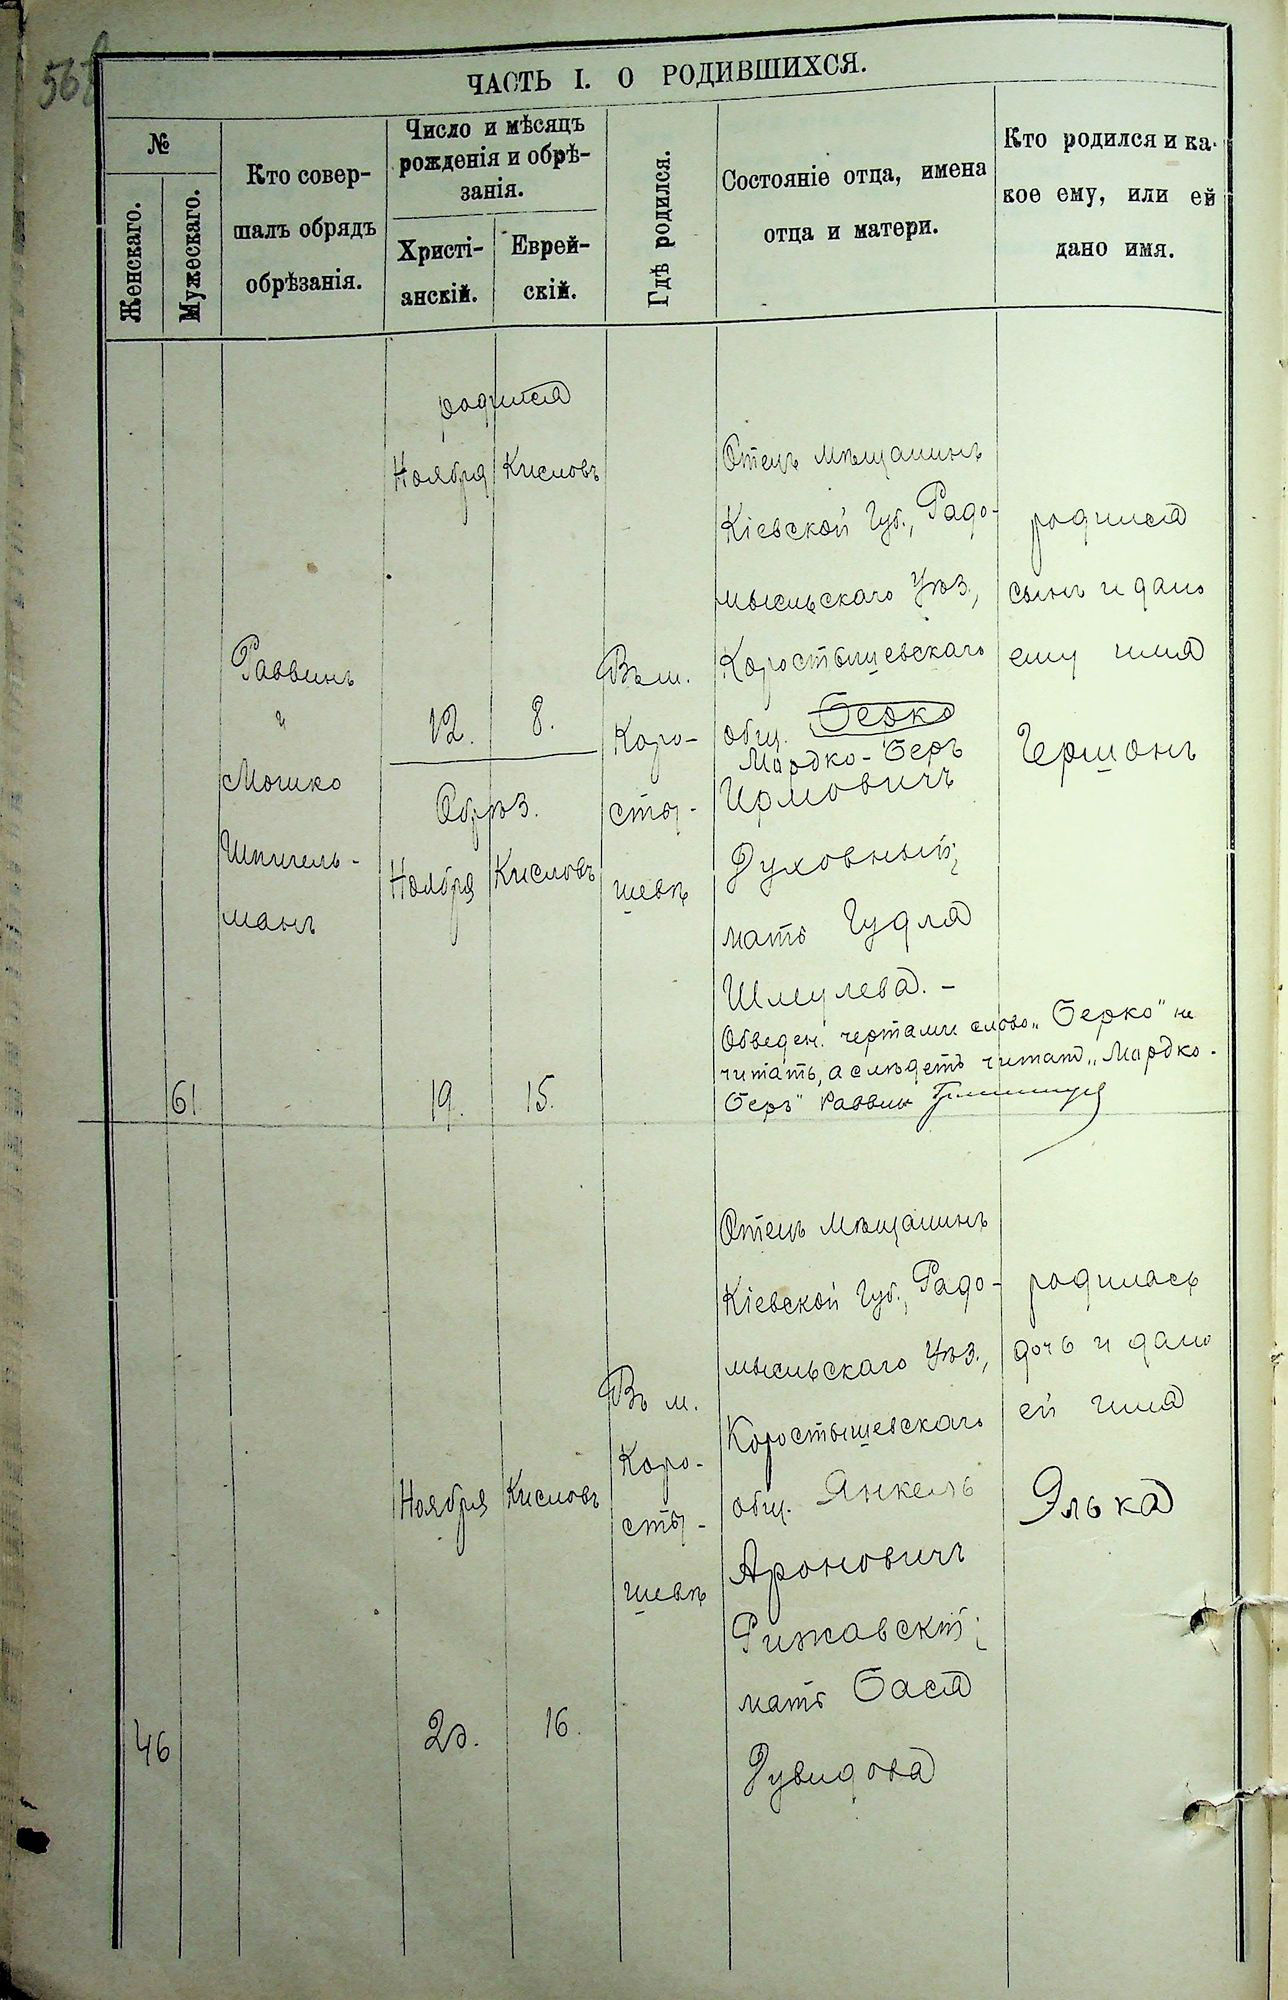 568
ЧАСТЬ I. О РОДИВШИХСЯ.
№
Женскаго.
Мужескаго.
Кто совер-
шалъ обрядъ
обрѣзанія.
Число и мѣсяцъ
рожденія и обрѣ-
занія.
Христі-
анскій.
Еврей-
скій.
Гдѣ родился.
Состояніе отца, имена
отца и матери.
Кто родился и ка-
кое ему, или ей
дано имя.
61
Раввинъ
и
Мошко
Шпигель-
манъ
родился
Ноября
Кислевъ
12.
8.
Обрѣз.
Ноября
Кислевъ
19.
15.
Въ м.
Коро-
сты-
шевѣ
Отецъ мѣщанинъ
Кіевской Губ., Радо-
мысльскаго Уѣз.,
Коростышевскаго
общ. Берко
Мордко-Беръ
Ирмовичъ
Духовный;
мать Гудля
Шмулева. –
Обведен. чертами слово „Берко" не
читать, а слѣдетъ читать „Мордко-
Беръ" Раввин
родился
сынъ и дано
ему имя
Гершонъ
46
Ноября
Кислевъ
20.
16.
Въ м.
Коро-
сты-
шевѣ
Отецъ мѣщанинъ
Кіевской Губ., Радо-
мысльскаго Уѣз.,
Коростышевскаго
общ. Янкель
Ароновичъ
Рижавскій;
мать Бася
Дувидова
родилась
дочь и дано
ей имя
Элька